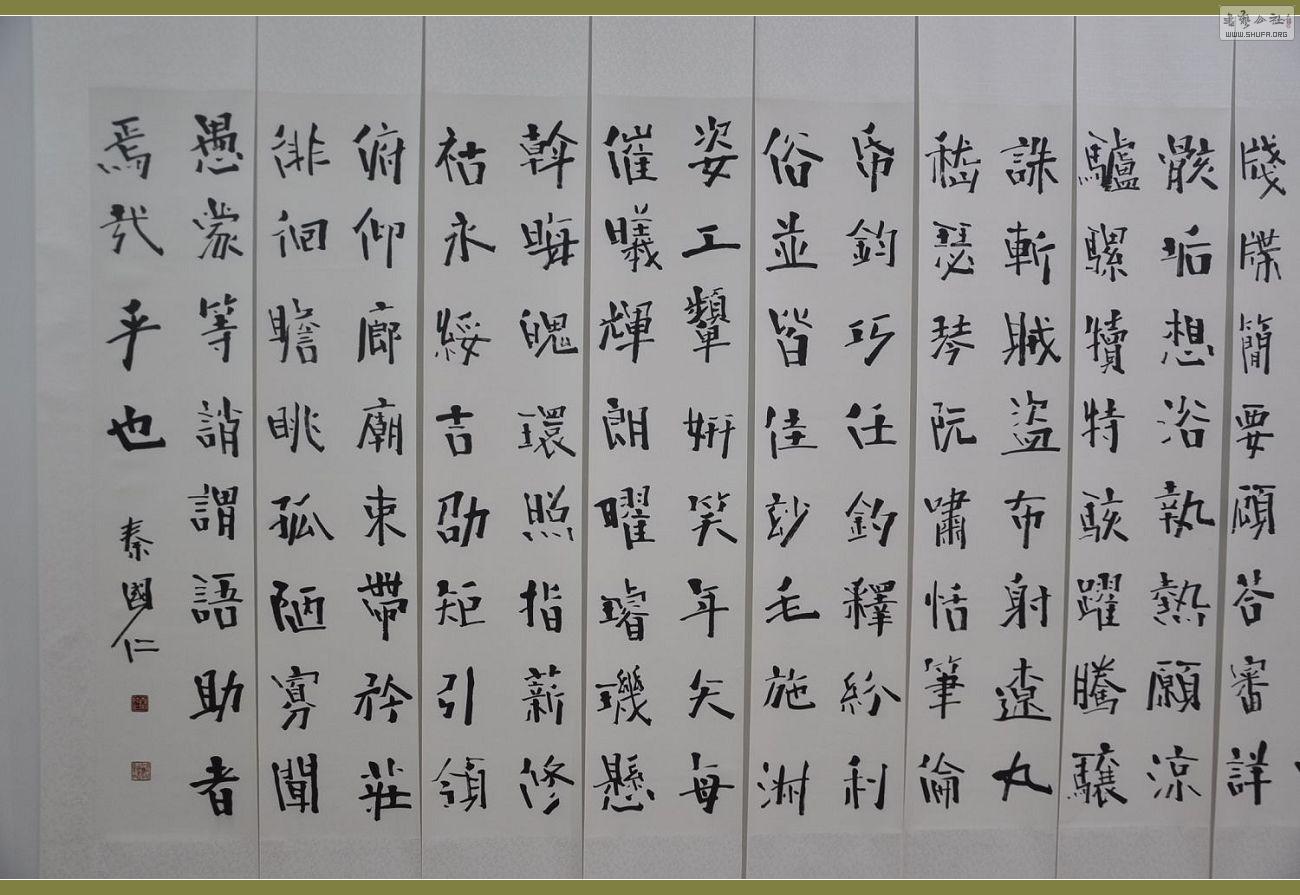 牋牒簡要顧答審詳
骸垢想浴執熱願涼
驢騾犢特駭躍騰驤
誅斬賊盜布射遼丸
嵇瑟琴阮嘯恬筆倫
帋鈞巧任釣釋紛利
俗並皆佳玅毛施淋
姿工顰妍笑年矢每
催曦輝朗曜璿璣懸
斡晦魄環照指薪修
祜永綏吉劭矩引領
俯仰廊廟束帶矜莊
徘徊瞻眺孤陋寡聞
愚蒙等誚謂語助者
焉哉乎也
秦國仁
书艺公社
WWW.SHUFA.ORG